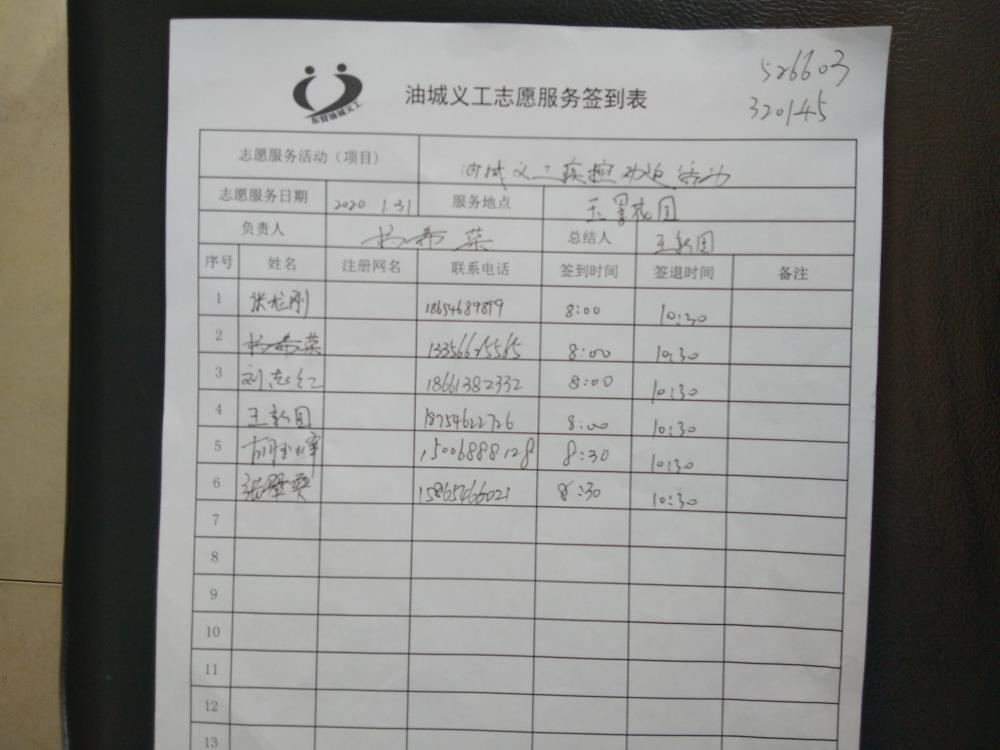 526603
320145
东营油城义工
油城义工志愿服务签到表
志愿服务活动（项目） 油城义工 活动
志愿服务日期 2020 1.31 服务地点 玉景花园
负责人 杨希荣 总结人 王新国
序号 姓名 注册网名 联系电话 签到时间 签退时间 备注
1 张龙刚 18654689819 8:00 10:30
2 杨希荣 8:00 10:30
3 刘志红 18661382332 8:00 10:30
4 王新国 18754622726 8:00 10:30
5 15006888128 8:30 10:30
6 15865466021 8:30 10:30
7
8
9
10
11
12
13